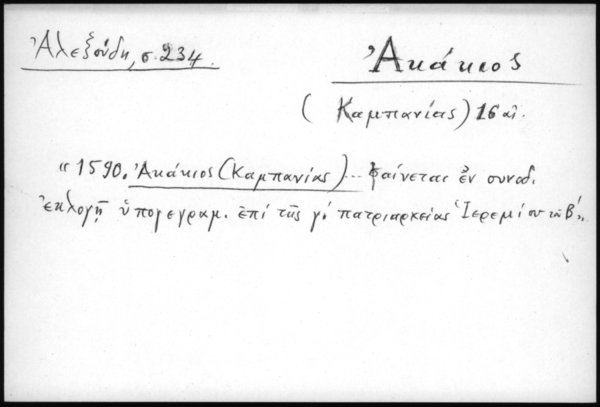 Ἀλεξούδη, σ. 234.
Ἀκάκιος
(Καμπανίας) 16 αἰ.
"1590. Ἀκάκιος (Καμπανίας)... φαίνεται ἐν συνοδ.
ἐκλογῇ ὑπογεγραμ. ἐπί τῆς γ΄ πατριαρχείας Ἱερεμίου τοῦ Β΄".